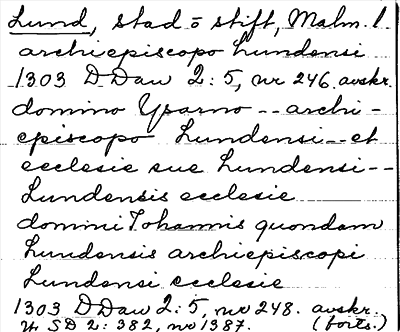 Lund, stad o stift, Malm. l.
archiepiscopo Lundensi
1303 DDan 2:5, nr 246. avskr.
domino Ysarno -- archi-
episcopo Lundensi -- et
ecclesie sue Lundensi --
Lundensis ecclesie
domini Johannis quondam
Lundensis archiepiscopi
Lundensi ecclesie
1303 DDan 2:5, nr 248. avskr.
Ur SD 2:382, nr 1387. (forts.)